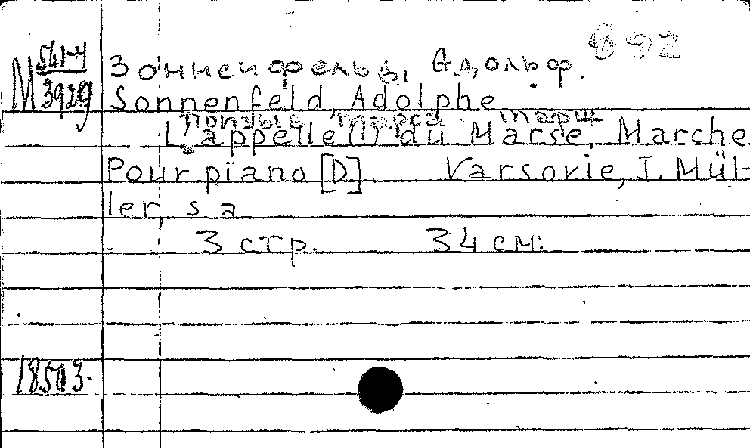 892
М 561-4
3929
Зонненфельд, Адольф.
Sonnenfeld, Adolphe
Призыв Марса. Марш
L'appelle(!) du Marse. Marche
Pour piano [D]. Varsovie, J. Mül-
ler, s a
3 стр. 34 см.
18503.